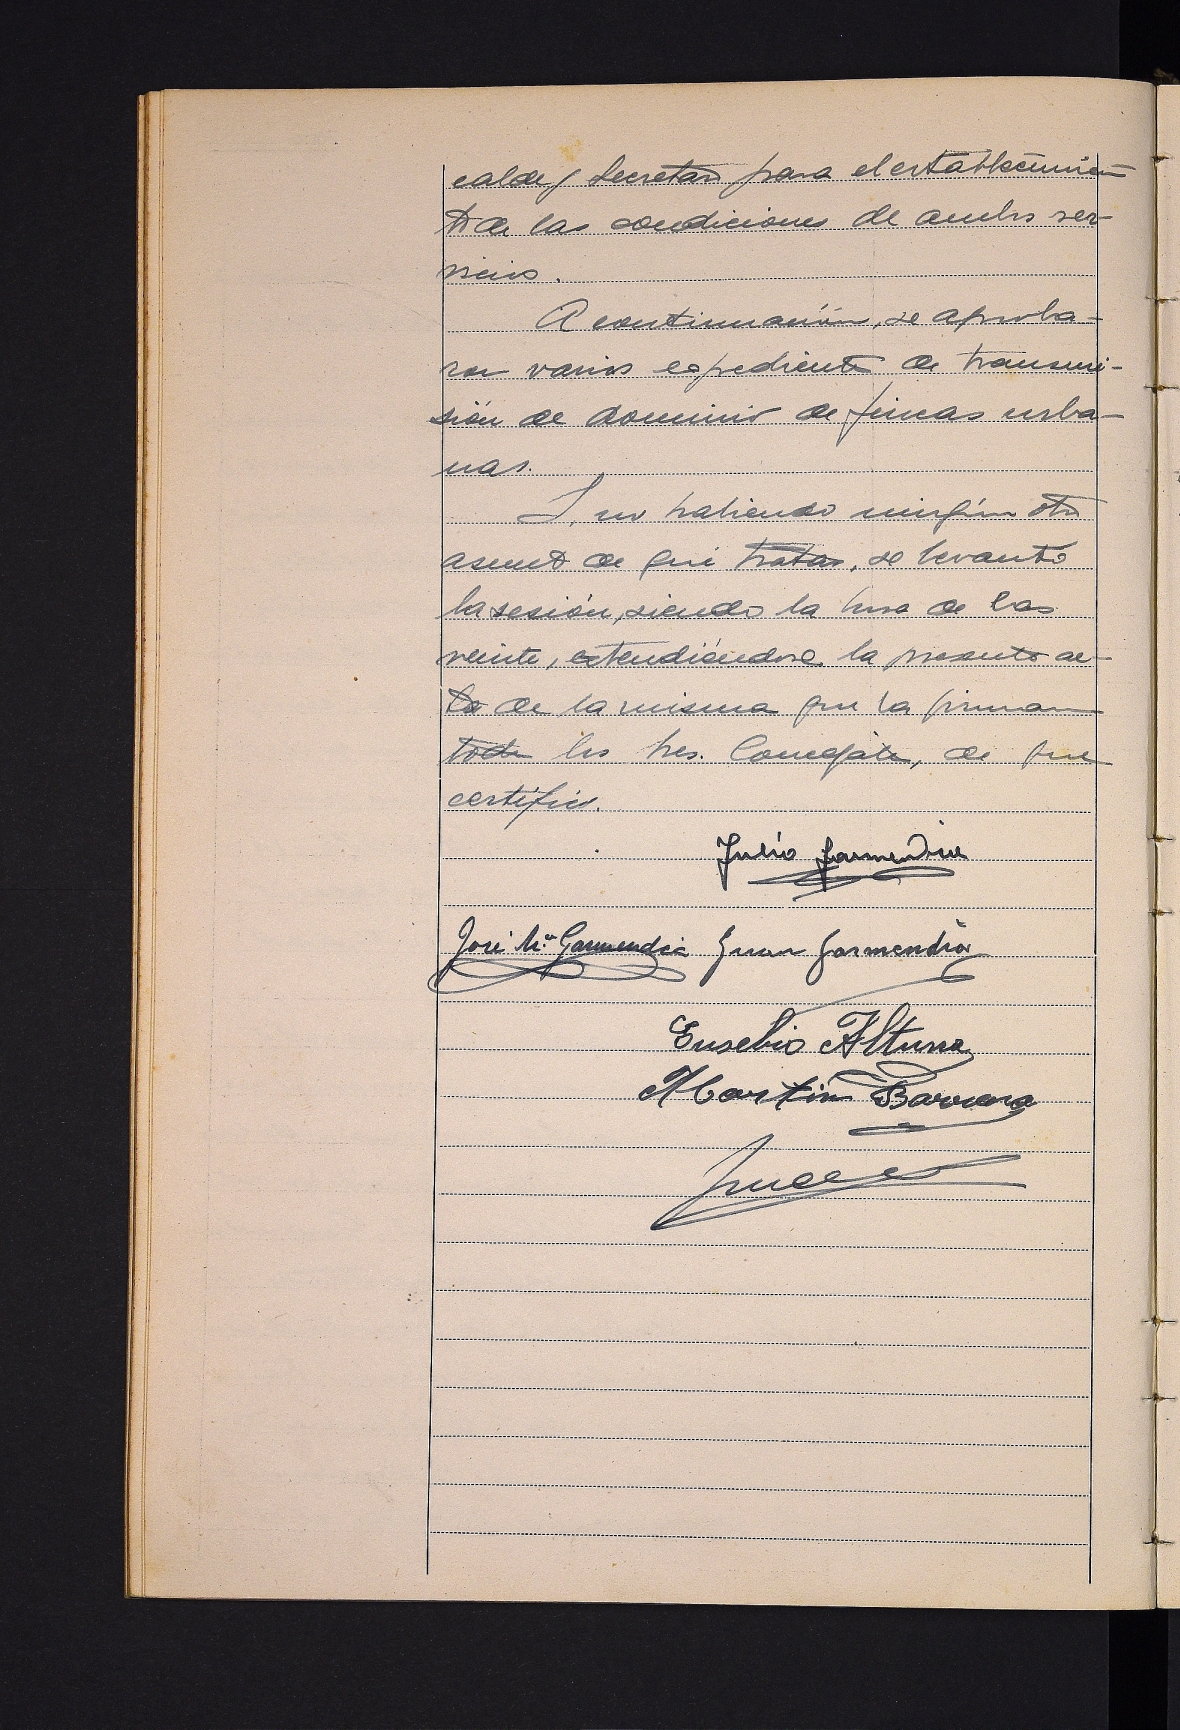 calde y Secretario para el establecimien
to de las condiciones de ambos ser-
vicios.
A continuación, se aproba-
ron varios expedientes de transmi-
sión de dominio de fincas urba-
nas.
Y, no habiendo ningún otro
asunto de que tratar, se levantó
la sesión, siendo la hora de las
veinte, extendiéndose la presente ac-
ta de la misma que la firman
todos los Sres. Concejales, de que
certifico.
Julio Garmendia
José Mª Garmendia Juan Garmendia
Eusebio Altuna
Martín Barrena